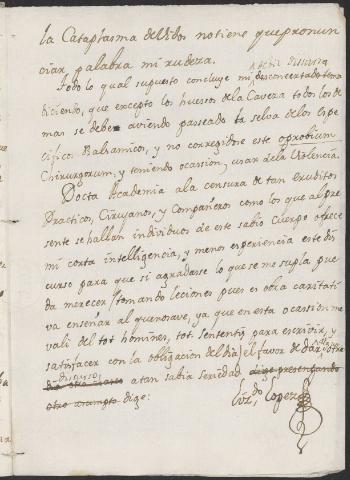 la Cataplasma de Vibos no tiene que pronun
ciar palabra mi rudeza.
Todo lo qual supuesto concluye mi debil discurso desconcertado
diciendo, que excepto los huesos de la Caveza todos los de
mas se deben aviendo paseado la selva de los Espe
cificos Balsamicos, y no corregidose este oprobium
Chirurgorum, y teniendo ocassion, usar de la Violencia.
Docta Academia a la censura de tan eruditos
Practicos, Cirujanos, y Compañeros como los que al pre
sente se hallan individuos de este sabio Cuerpo ofrece
mi corta intelligencia, y menos experiencia este dis
curso para que si agradarse lo que se me supla pue
da merecer (tomando leciones pues es obra caritati
va enseñar al que no save, ya que en esta ocassion me
vali del tot homines, tot sententiis para escrivir, y
satisfacer con la obligacion del dia) el favor de dar
discurso a tan sabia seriedad dije presentando
otro asumpto dige:
Liz.do Lopez